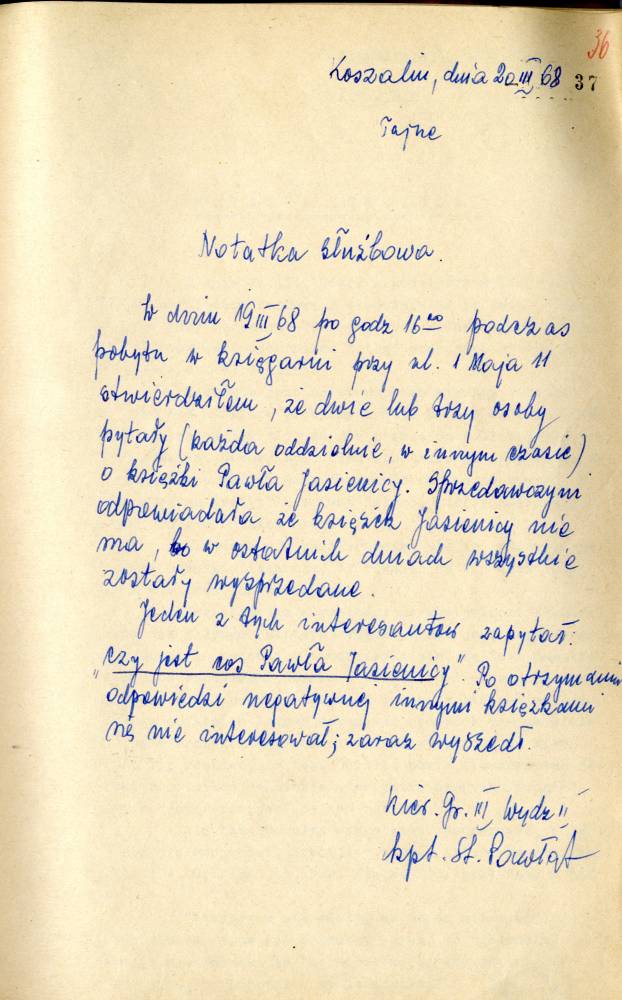 36
Koszalin, dnia 20 III 68 37
Tajne
Notatka służbowa.
W dniu 19 III 68 po godz 16 oo podczas
pobytu w księgarni przy ul. 1 Maja 11
stwierdziłem, że dwie lub trzy osoby
pytały (każda oddzielnie, w innym czasie)
o książki Pawła Jasienicy. Sprzedawczyni
odpowiadała, że książek Jasienicy nie
ma, bo w ostatnich dniach wszystkie
zostały wysprzedane.
Jeden z tych interesantów zapytał:
"czy jest cos Pawła Jasienicy". Po otrzymaniu
odpowiedzi negatywnej innymi książkami
się nie interesował; zaraz wyszedł.
Kier. Gr. III Wydz II
kpt. St. Pawłat